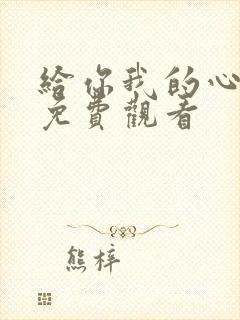 給你我的心
免費觀看
熊梓